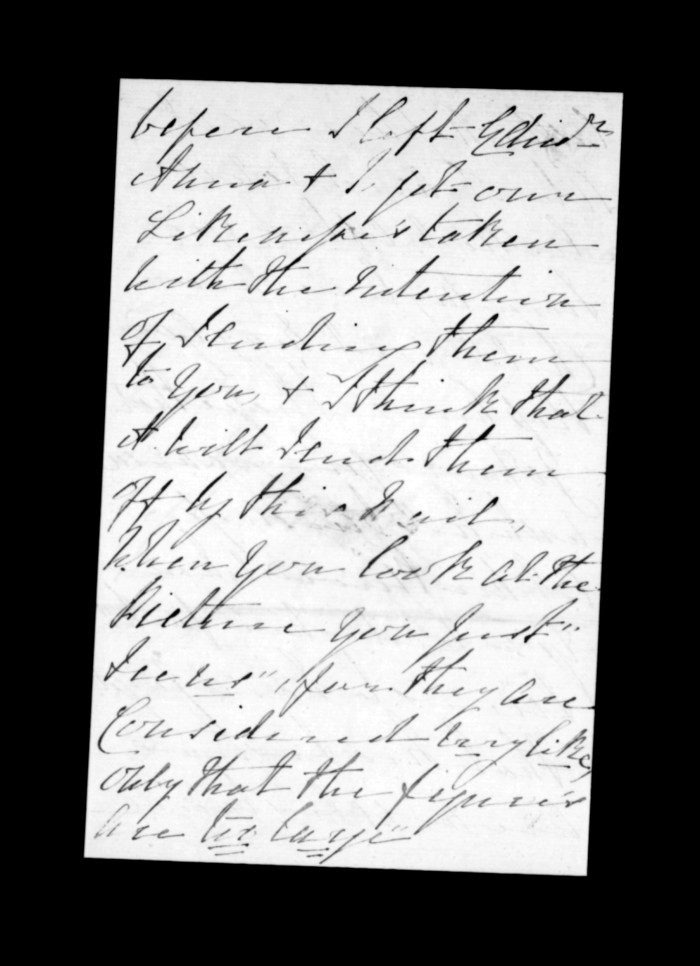 before I left Edinr
Anna + I got our
Likenesses taken
with the intention
of sending them
to you, + I think that
A. will send them
off by this mail,
When you look at the
Picture you just "
See us", for they are
Considered very like,
only that the figures
are too large"